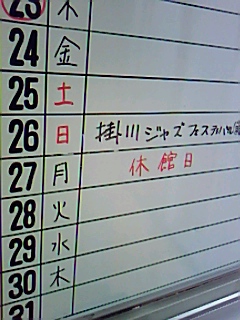 23 木
24 金
25 土
26 日 掛川ジャズフェスティバル
27 月 休館日
28 火
29 水
30 木
31